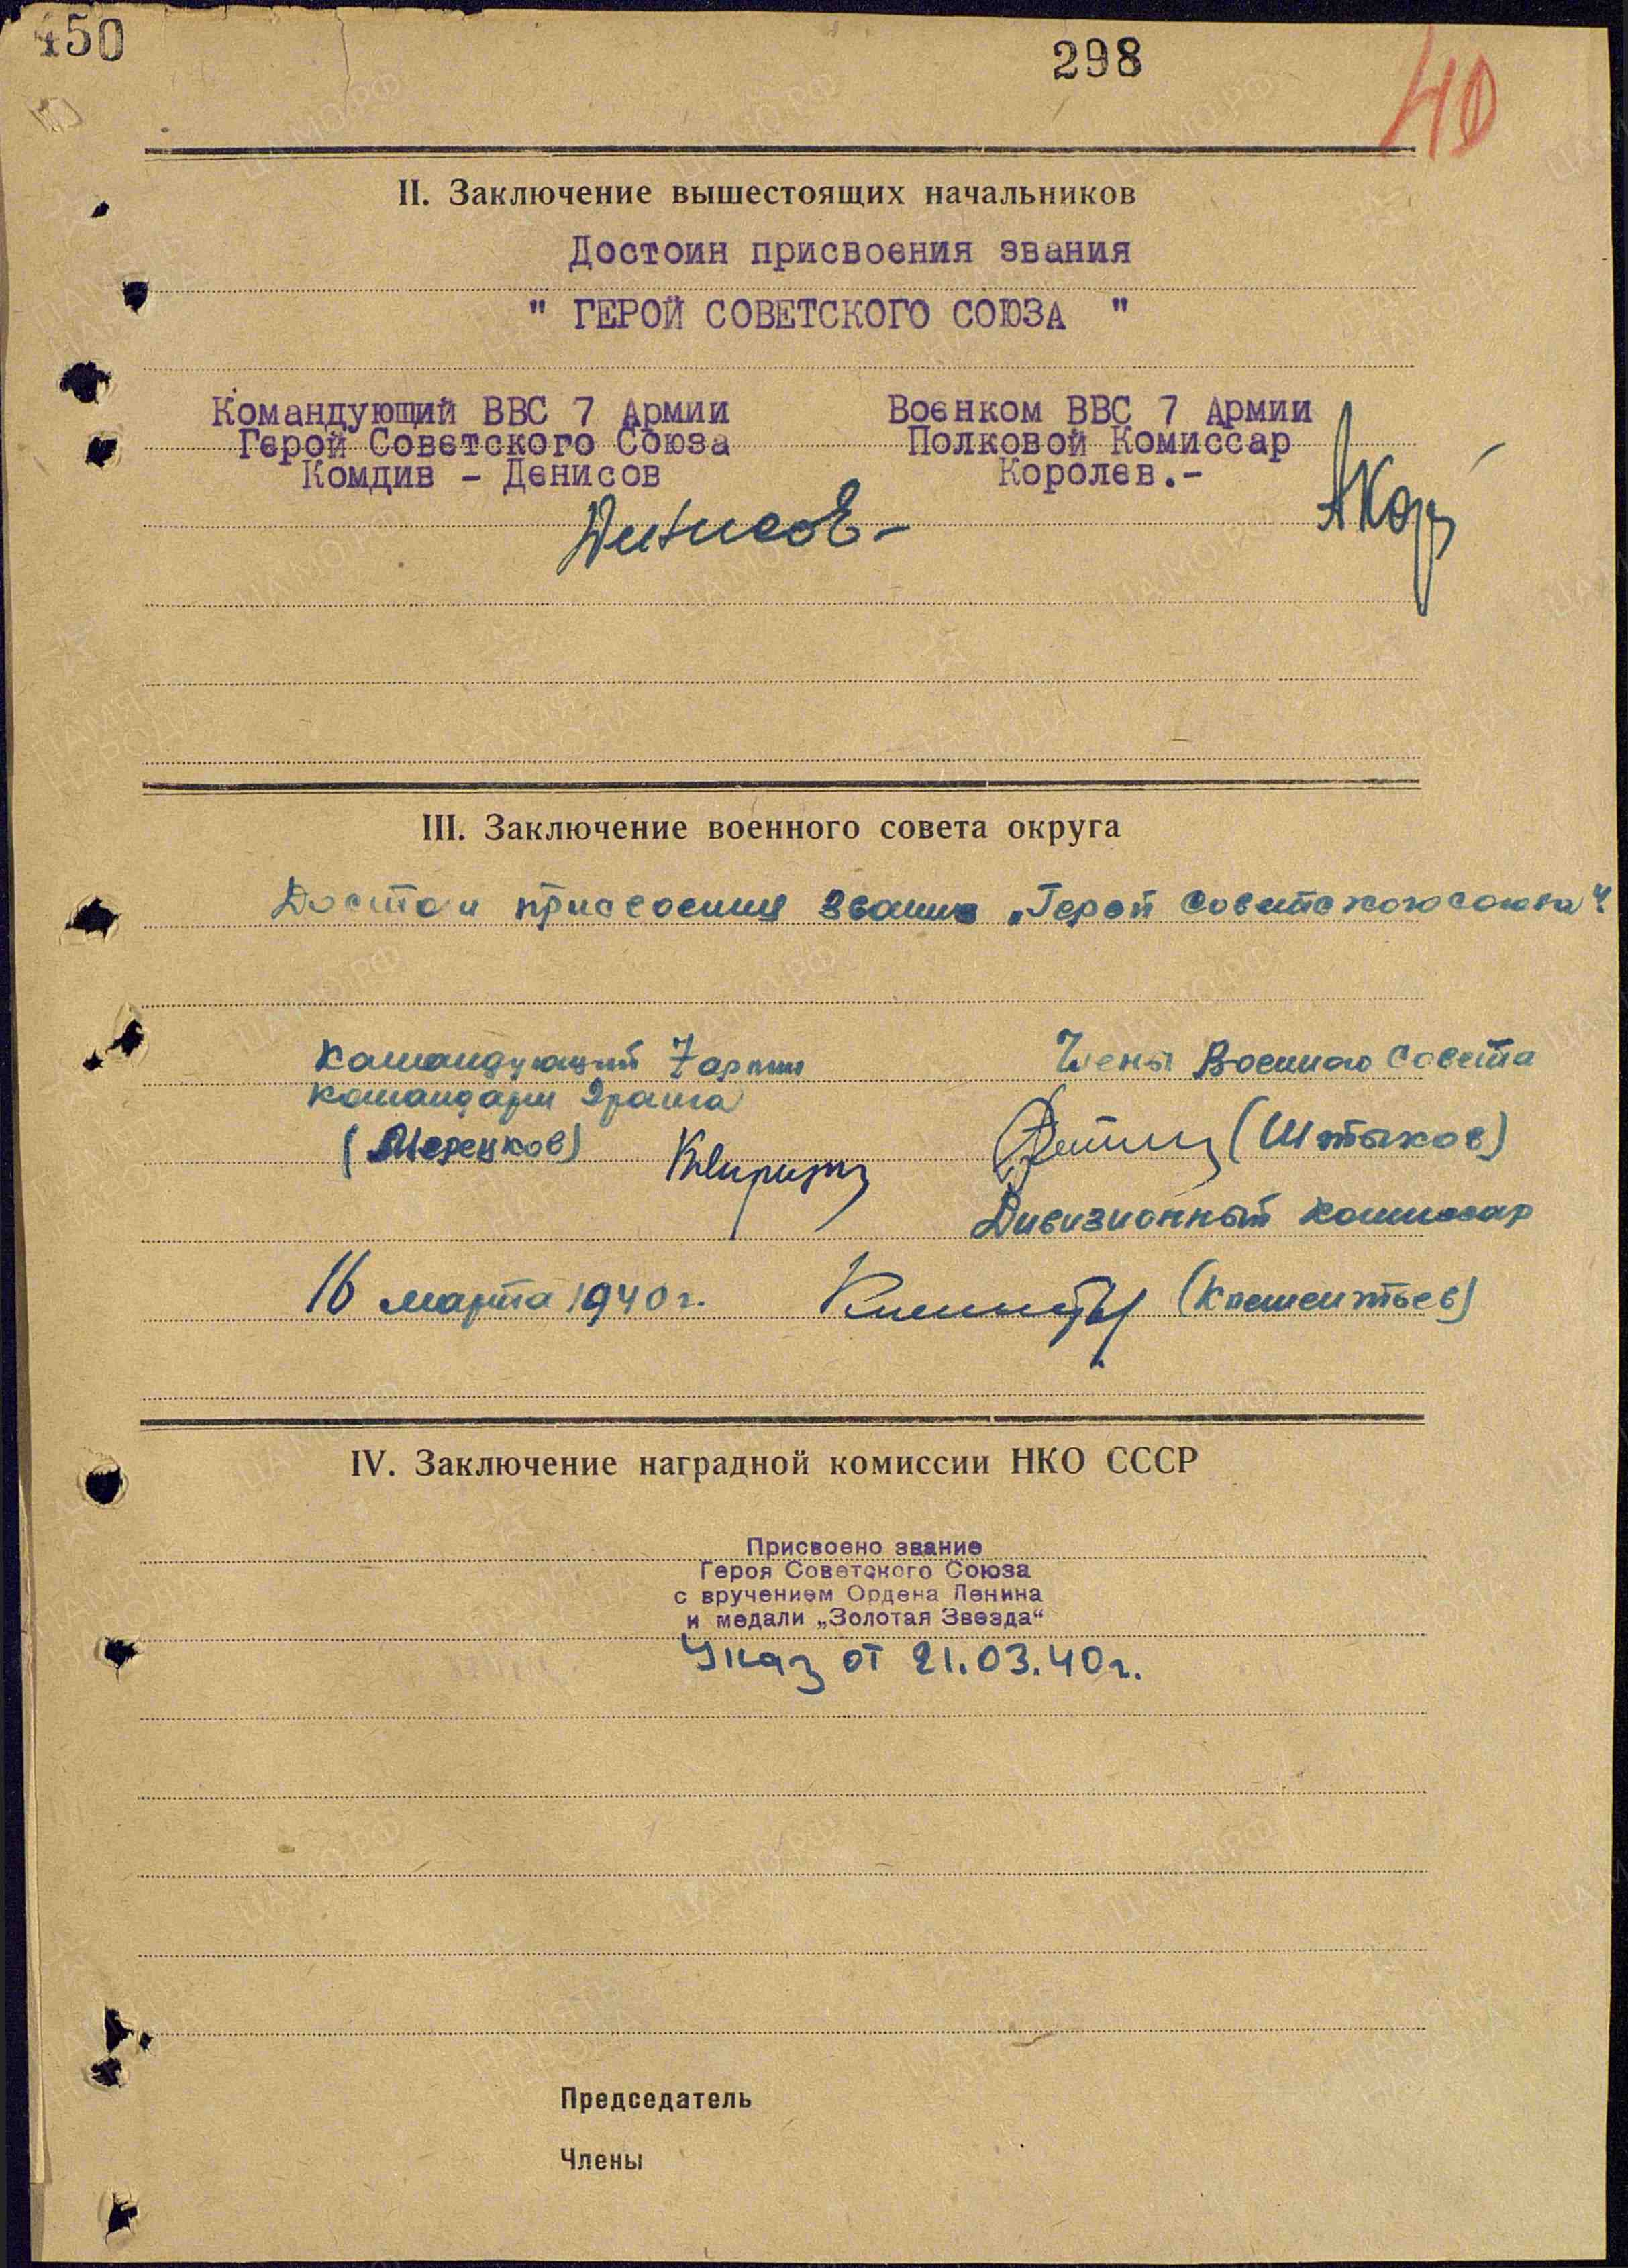 450
298
40
II. Заключение вышестоящих начальников
Достоин присвоения звания
" ГЕРОЙ СОВЕТСКОГО СОЮЗА "
Командующий ВВС 7 Армии
Герой Советского Союза
Комдив - Денисов
Военком ВВС 7 Армии
Полковой Комиссар
Королев.-
Денисов
III. Заключение военного совета округа
Достоин присвоения звания „Герой Советского союза“.
Командующий 7 армии
командарм 2 ранга
(Мерецков)
Члены Военного Совета
(Штыков)
Дивизионный комиссар
16 марта 1940 г.
(Клементьев)
IV. Заключение наградной комиссии НКО СССР
Присвоено звание
Героя Советского Союза
с вручением Ордена Ленина
и медали „Золотая Звезда“
Указ от 21.03.40г.
Председатель
Члены